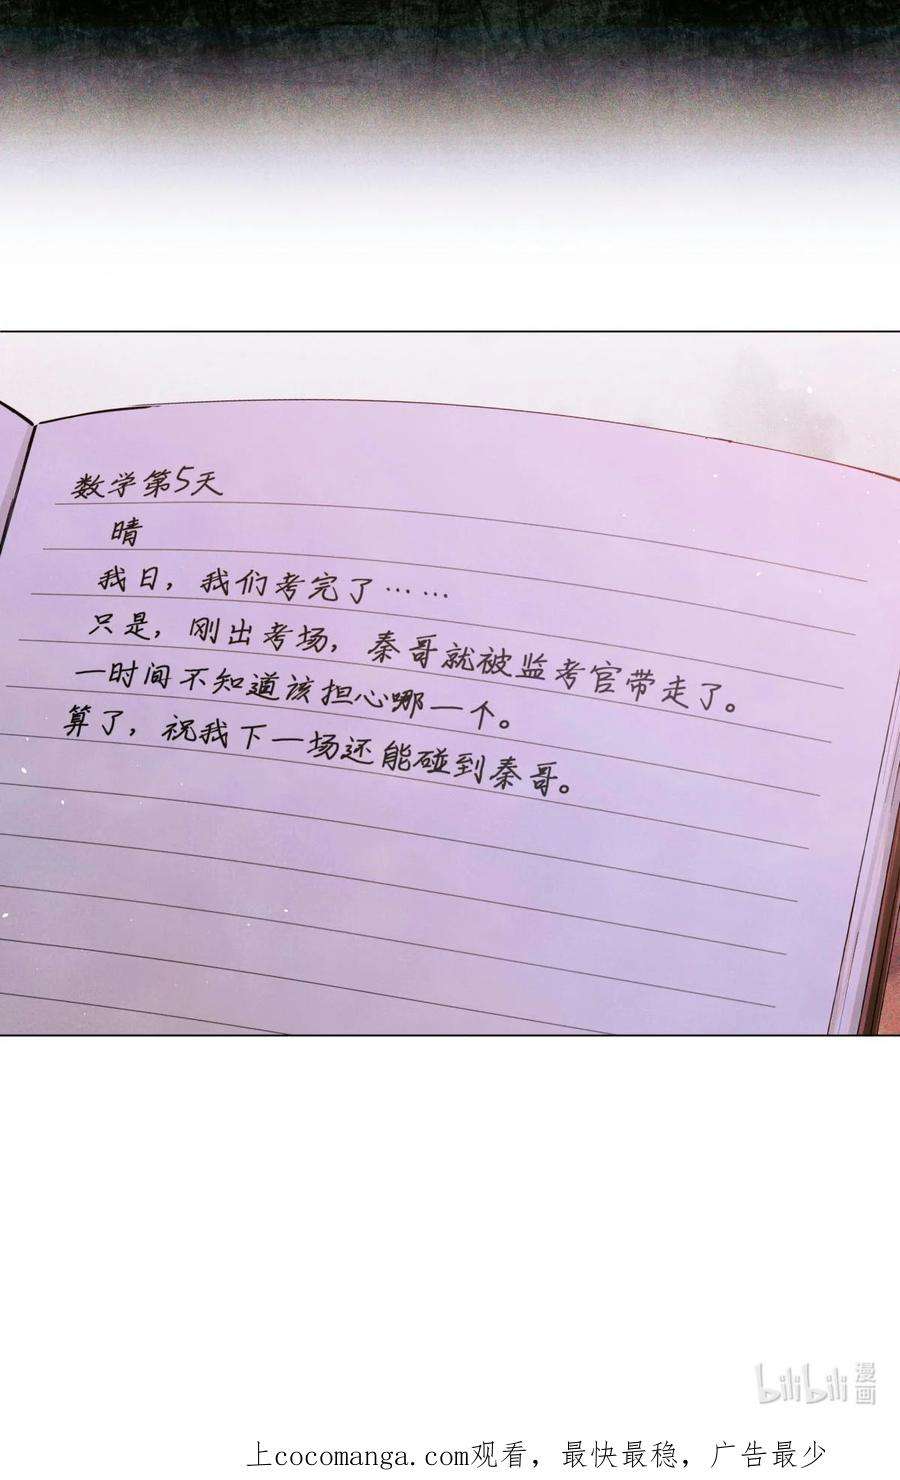 数学第5天
晴
我日，我们考完了……
只是，刚出考场，秦哥就被监考官带走了。
一时间不知道该担心哪一个。
算了，祝我下一场还能碰到秦哥。
bilibili漫画
上cocomanga.com观看，最快最稳，广告最少